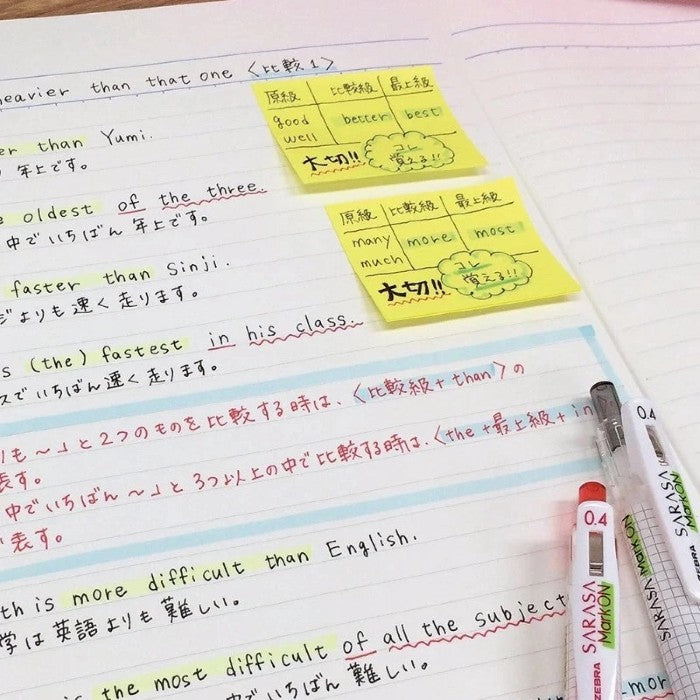 heavier than that one 〈比較1〉
than Yumi.
年上です。
oldest of the three.
中でいちばん 年上です。
faster than Sinji.
よりも 速く 走ります。
(the) fastest in his class.
でいちばん速く 走ります。
原級 比較級 最上級
good better best
well
大切!!
コレ
覚える!!
原級 比較級 最上級
many more most
much
大切!!
コレ
覚える!!
も〜」と2つのものを比較する時は、〈比較級+than〉の
表す。
中でいちばん〜」と3つ以上の中で比較する時は、〈the+最上級+in
表す。
is more difficult than English.
学は 英語よりも 難しい。
the most difficult of all the subject
でいちばん 難しい。
0.4
SARASA
MarkON
ZEBRA
0.4
SARASA
MarkON
ZEBRA
SARASA
MarkON